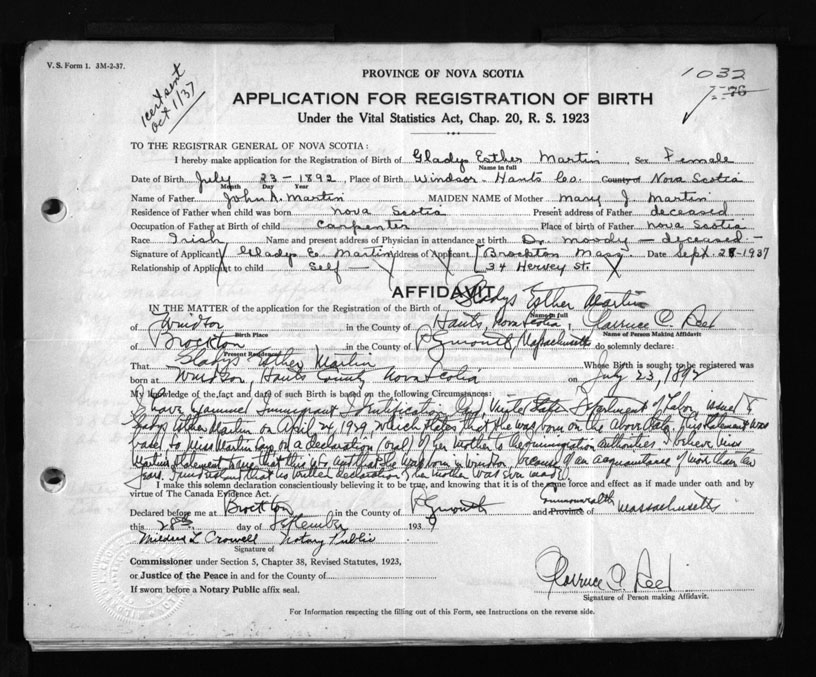 V. S. Form 1. 3M-2-37.
1 cert sent
Oct 1/37
1032
76
PROVINCE OF NOVA SCOTIA
APPLICATION FOR REGISTRATION OF BIRTH
Under the Vital Statistics Act, Chap. 20, R. S. 1923
TO THE REGISTRAR GENERAL OF NOVA SCOTIA:
I hereby make application for the Registration of Birth of Gladys Esther Martin Sex Female
Name in full
Date of Birth July 23-1892 Place of Birth Windsor - Hants Co. County of Nova Scotia
Month Day Year
Name of Father John A. Martin MAIDEN NAME of Mother Mary J. Martin
Residence of Father when child was born Nova Scotia Present address of Father deceased
Occupation of Father at Birth of child Carpenter Place of birth of Father Nova Scotia
Race Irish Name and present address of Physician in attendance at birth Dr. Moody - deceased -
Signature of Applicant Gladys E. Martin Address of Applicant Brockton Mass. Date Sept. 28-1937
Relationship of Applicant to child Self 34 Hervey St.
AFFIDAVIT
IN THE MATTER of the application for the Registration of the Birth of Gladys Esther Martin
Name in full
of Windsor in the County of Hants, Nova Scotia, Clarence A. Reed
Birth Place Name of Person Making Affidavit
of Brockton in the County of Plymouth, Massachusetts do solemnly declare:
Present Residence
That Gladys Esther Martin Whose Birth is sought to be registered was
born at Windsor, Hants County Nova Scotia on July 23, 1892
My knowledge of the fact and date of such Birth is based on the following Circumstances:
I have examined Immigrant Identification Card, United States Department of Labor, issued to
Gladys Esther Martin on April 24, 1929, which states that she was born on the above date. This statement was
based to Miss Martin says on a declaration (oral) of her mother to the immigration authorities. I believe Miss
Martin's statement to me that this is so and that she was born in Windsor, because of an acquaintance of more than ten
years. I understand that no written declaration of her mother was ever made.
I make this solemn declaration conscientiously believing it to be true, and knowing that it is of the same force and effect as if made under oath and by
virtue of The Canada Evidence Act.
Declared before me at Brockton in the County of Plymouth and Province of Commonwealth Massachusetts
this 28th day of September 1937
Mildred L Crowell Notary Public
Signature of
Commissioner under Section 5, Chapter 38, Revised Statutes, 1923,
or Justice of the Peace in and for the County of
If sworn before a Notary Public affix seal.
Clarence A. Reed
Signature of Person making Affidavit.
For Information respecting the filling out of this Form, see Instructions on the reverse side.